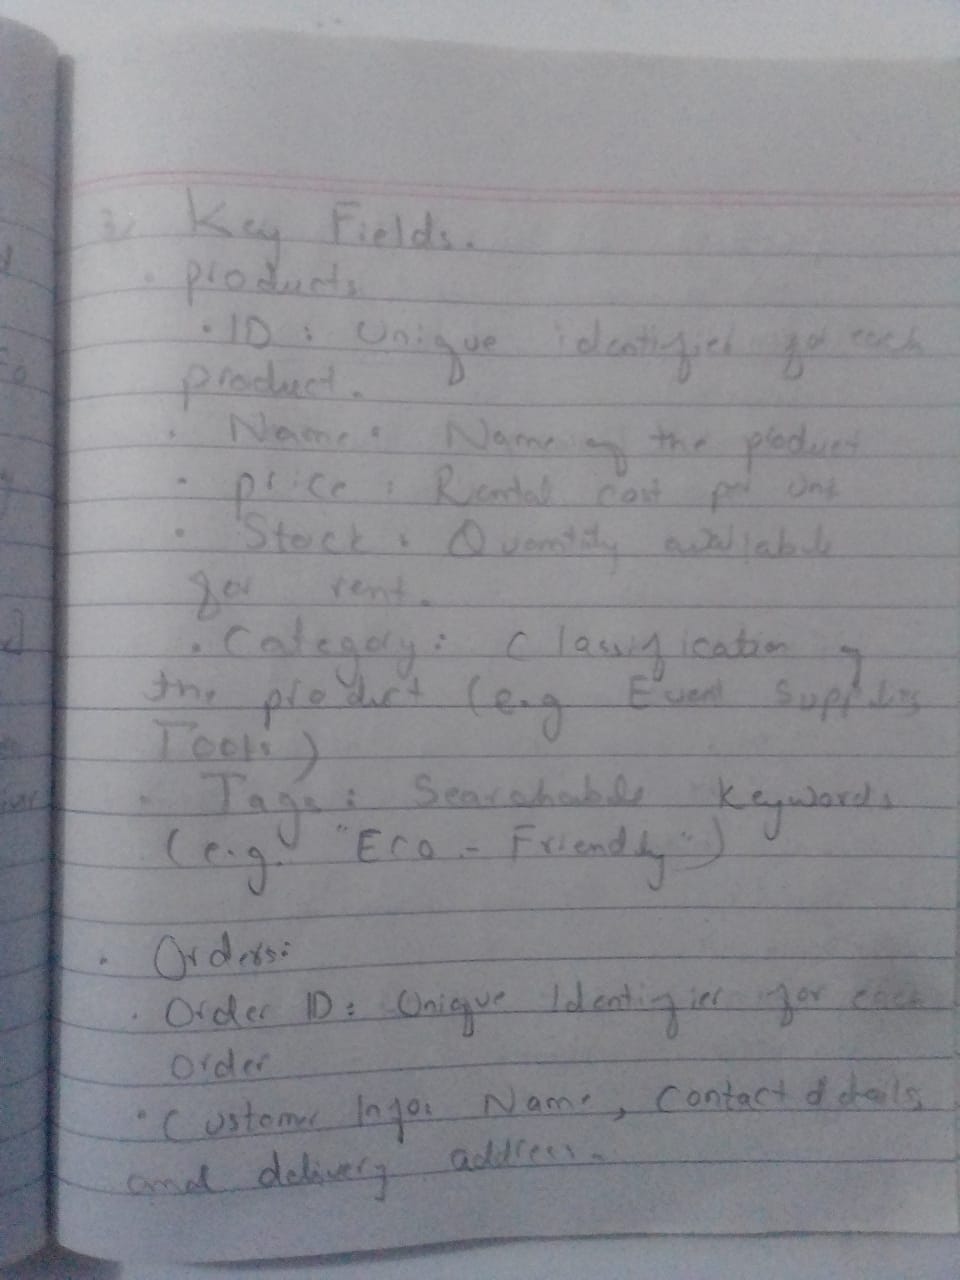 Key Fields.
• products
• ID : Unique identifier for each
product.
• Name : Name of the product
• price : Rental cost per unit
• Stock : Quantity available
for rent.
• Category : Classification of
the product (e.g Event Supplies
Tools)
• Tags : Searchable Keywords
(e.g. "Eco - Friendly")
• Orders:
• Order ID : Unique Identifier for each
Order
• Customer Info: Name, Contact details
and delivery address.